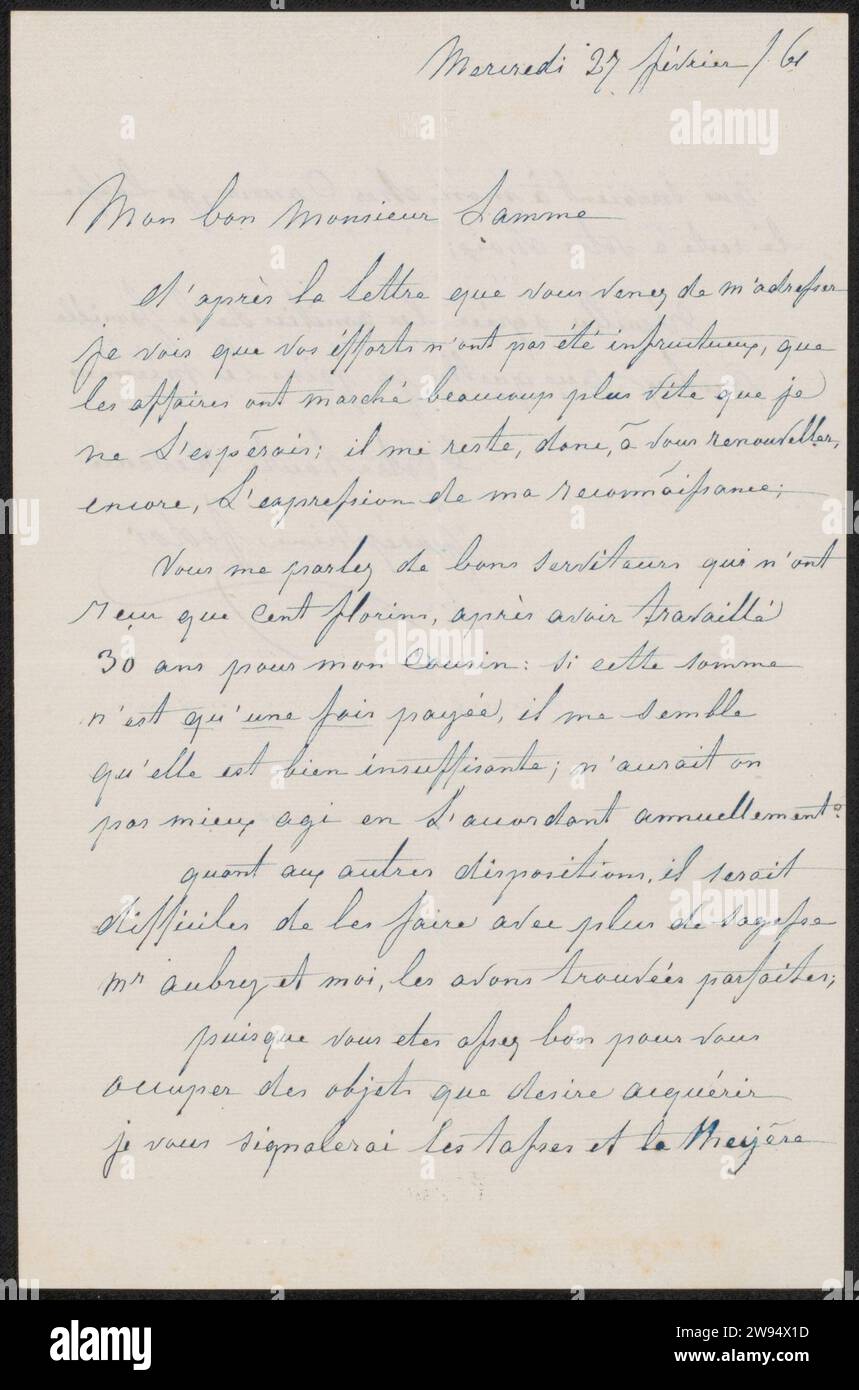 Mercredi 27 février / 61
Mon bon Monsieur Lamme
D'après la lettre que vous venez de m'adresser
je vois que vos éfforts n'ont pas été infructueux, que
les affaires ont marché beaucoup plus vite que je
ne l'espérais; il me reste, donc, à vous renouveller,
encore, l'expression de ma reconnaissance;
Vous me parlez de bons serviteurs qui n'ont
reçu que cent florins, après avoir travaillé
30 ans pour mon cousin: si cette somme
n'est qu'une fois payée, il me semble
qu'elle est bien insuffisante; n'aurait on
pas mieux agi en l'acordant annuellement?
quant aux autres dispositions, il serait
difficiles de les faire avec plus de sagesse
mr aubry et moi, les avons trouvées parfaites;
puisque vous etes assez bon pour vous
occuper des objets que desire acquérir
je vous signalerai les tasses et la theyére
alamy
Image ID: 2W94X1D
www.alamy.com